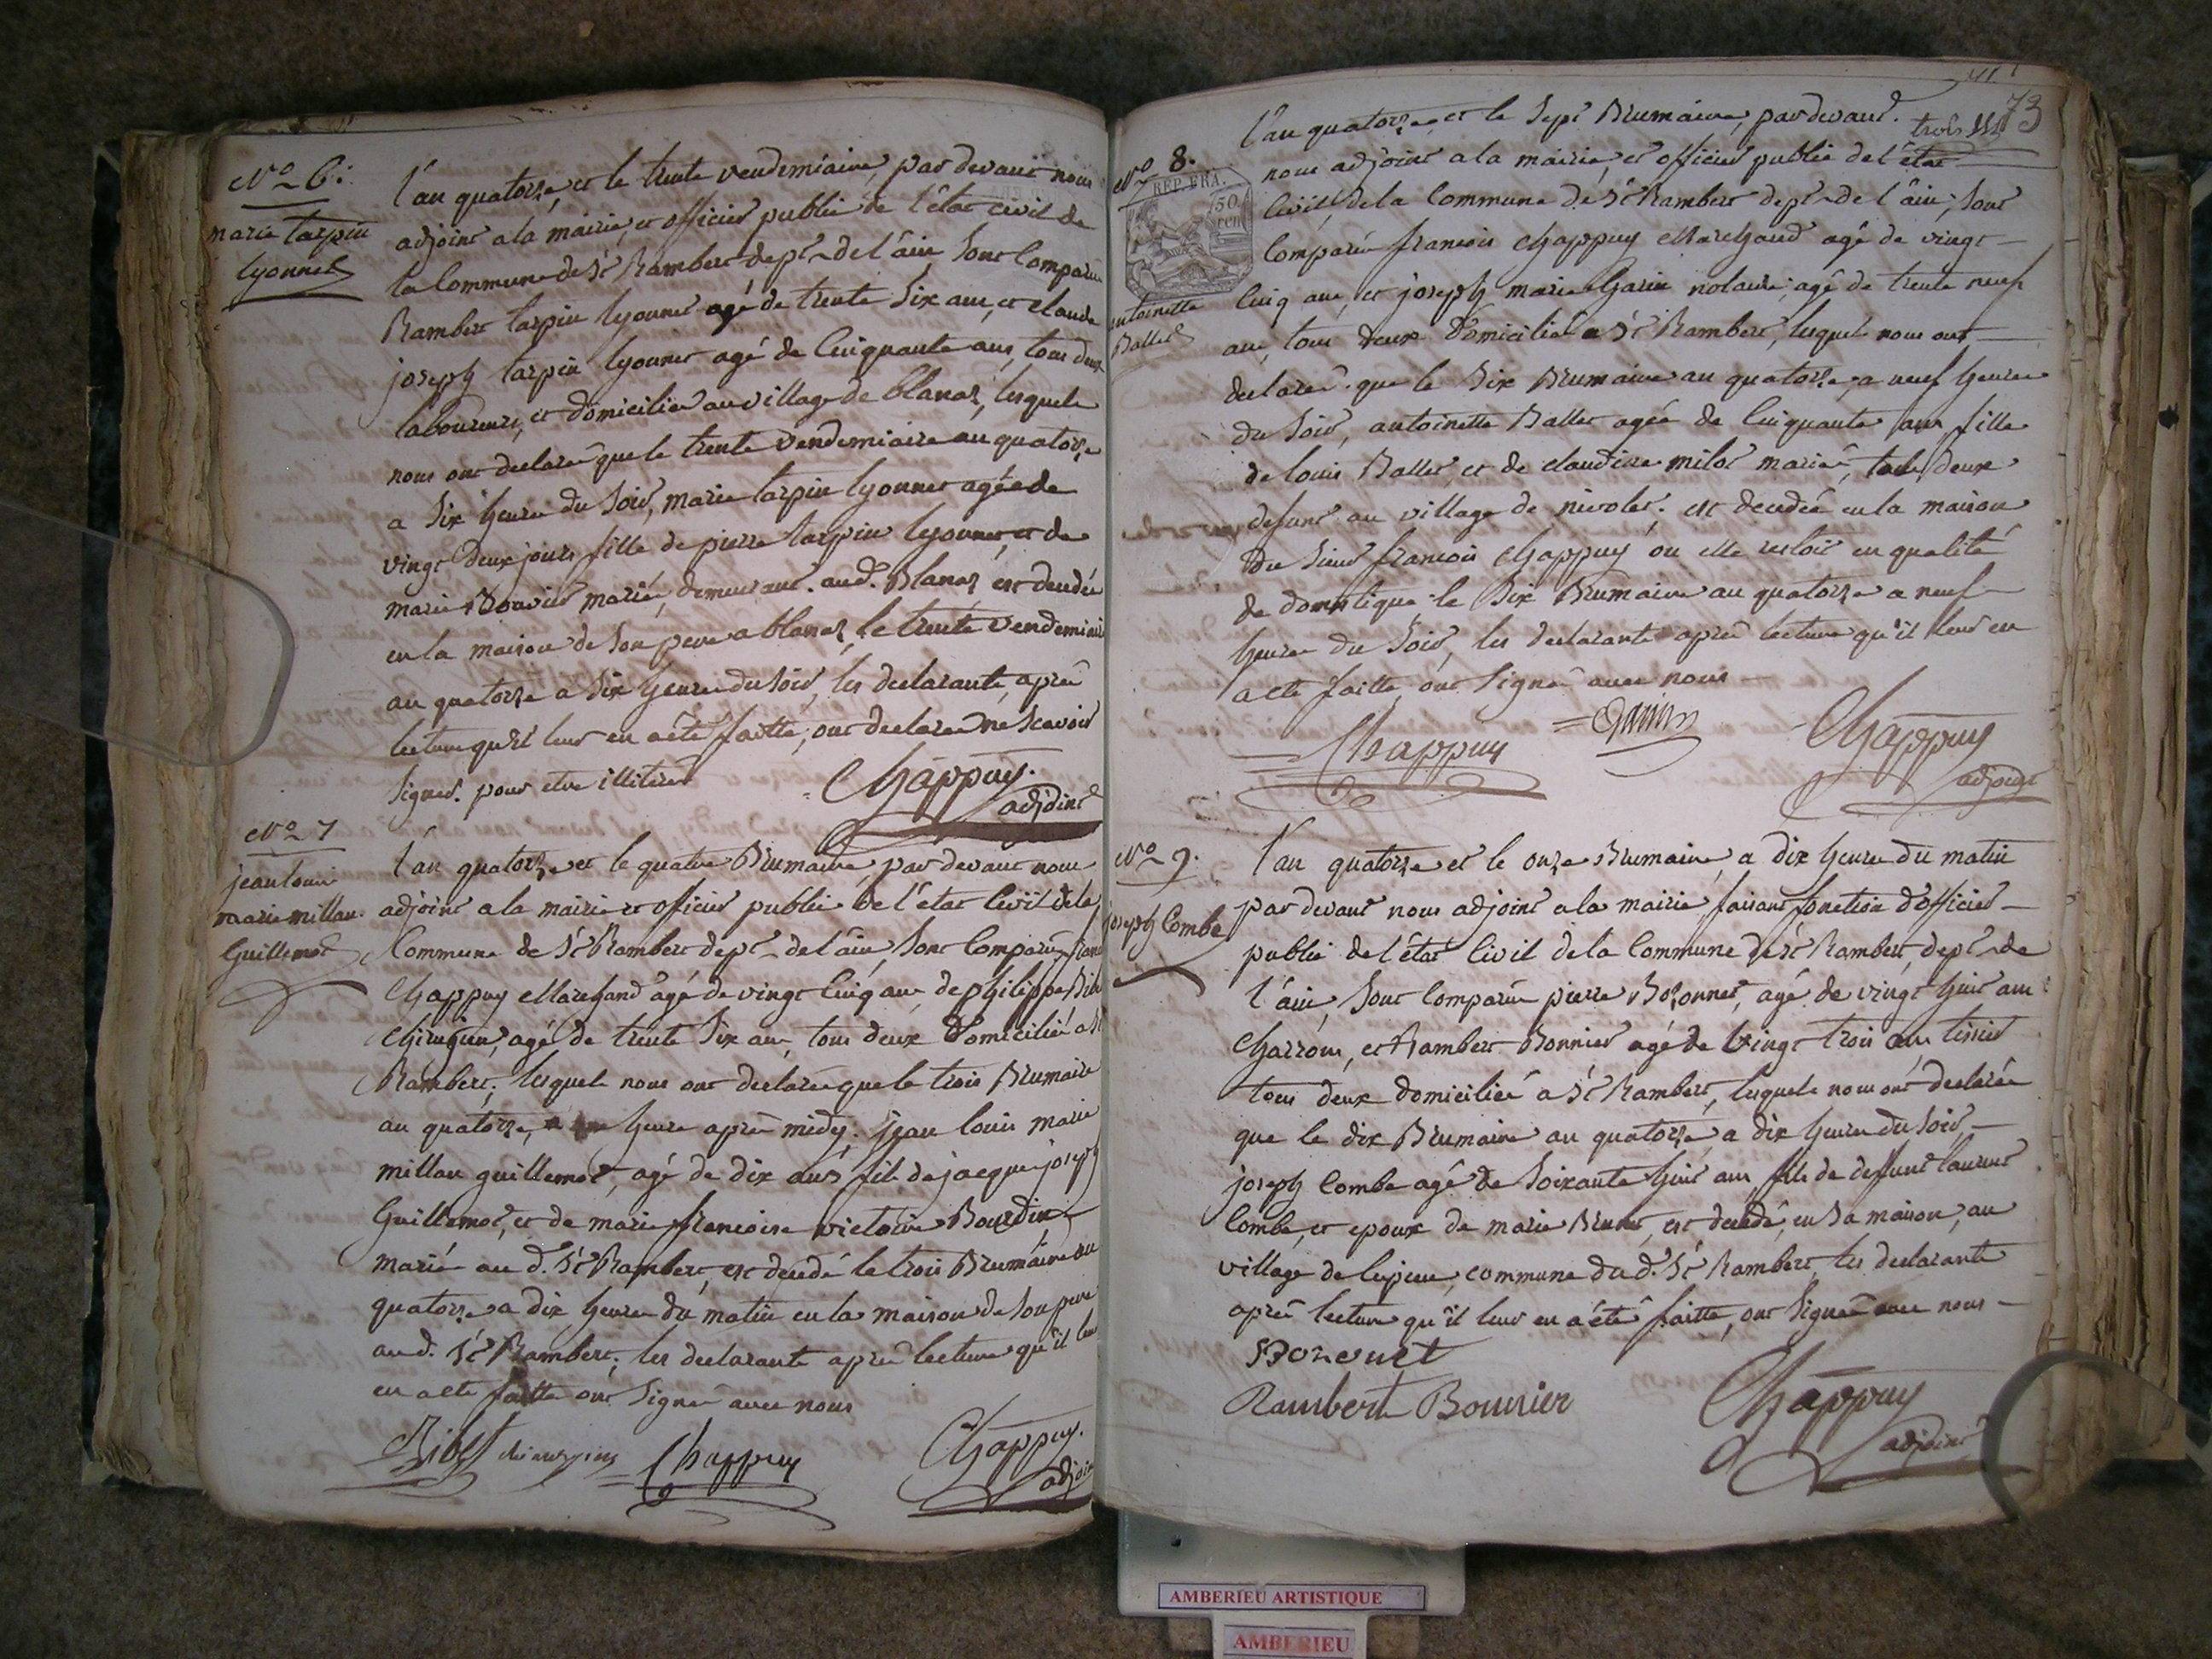 N.o 6.
marie tarpin
lyonnet
l'an quatorze, et le trente vendemiaire, par devant nous
adjoint a la mairie, et officier public de l'état civil de
la Commune de St Rambert dept de l'ain sont Comparu
Rambert tarpin lyonnet agé de trente six ans, et claude
joseph tarpin lyonnet agé de Cinquante ans, tous deux
laboureurs, et domiciliés au village de blanaz, lesquels
nous ont declaré que le trente vendemiaire an quatorze
a six heures du soir, marie tarpin lyonnet agée de
vingt deux jours fille de pierre tarpin lyonnet et de
marie mariés, demeurant aud. Blanaz est decedée
en la maison de son pere a blanaz, le trente vendemiaire
an quatorze a six heures du soir, les declarants, après
lecture qu'il leur en a été faitte, ont declaré ne scavoir
signer. pour etre illitérés
Chappuy.
adjoint
N.o 7
jean louis
marie millau
Guillemot
l'an quatorze et le quatre Brumaire, par devant nous
adjoint a la mairie et officier public de l'état Civil de la
Commune de St Rambert dept de l'ain sont Comparus
Chappuy Marchand agé de vingt Cinq ans, de philippe
chirurgien, agé de trente six ans, tous deux domiciliés a St
Rambert; lesquels nous ont declaré que le trois Brumaire
an quatorze, a heure après midy. jean louis marie
millau guillemot, agé de dix ans fils de jacque joseph
Guillemot, et de marie francoise victoire Bourdin
mariés au d. St Rambert, est decedé le trois Brumaire an
quatorze a dix heures du matin en la maison de son pere
aud. St Rambert; les declarants après lecture qu'il leur
en a eté faitte ont signé avec nous
Ribet chirurgien Chappuy
Chappuy.
adjoint
73
N.o 8.
REP. FRA.
50
cen
antoinette
Ballet
l'an quatorze, et le sept Brumaire, par devant
nous adjoint a la mairie, et officier public de l'état
Civil, de la Commune de St Rambert dept de l'ain, sont
Comparus francois chappuy Marchand agé de vingt
Cinq ans, et joseph marie Garin notaire, agé de trente neuf
ans, tous deux domiciliés a St Rambert, lesquels nous ont
declaré que le six Brumaire an quatorze, a neuf heures
du soir, antoinette Ballet agée de Cinquante ans, fille
de louis Ballet, et de claudine milot mariés, tous deux
defunt au village de nivolet. est decedée en la maison
du sieur francois chappuy ou elle restoit en qualité
de domestique le six Brumaire an quatorze a neuf
heures du soir, les declarants après lecture qu'il leur en
a eté faitte, ont signé avec nous
Chappuy
Garin
Chappuy
adjoint
N.o 9.
joseph Combe
l'an quatorze et le onze Brumaire, a dix heures du matin
par devant nous adjoint a la mairie, faisant fonction d'officier
public de l'état Civil de la Commune de St Rambert, dept de
l'ain, sont Comparus pierre Bozonnet, agé de vingt huit ans
Charron, et Rambert Bonnier agé de vingt trois ans tissier
tous deux domiciliés a St Rambert, lesquels nous ont declaré
que le dix Brumaire an quatorze, a dix heures du soir,
joseph Combe agé de soixante huit ans fils de deffunt laurent
Combe, et epoux de marie Brunet, est decedé, en sa maison, au
village de commune du d. St Rambert, les declarants
après lecture qu'il leur en a été faitte, ont signés avec nous
Bozonet
Rambert Bonnier
Chappuy
adjoint
AMBERIEU ARTISTIQUE
AMBERIEU